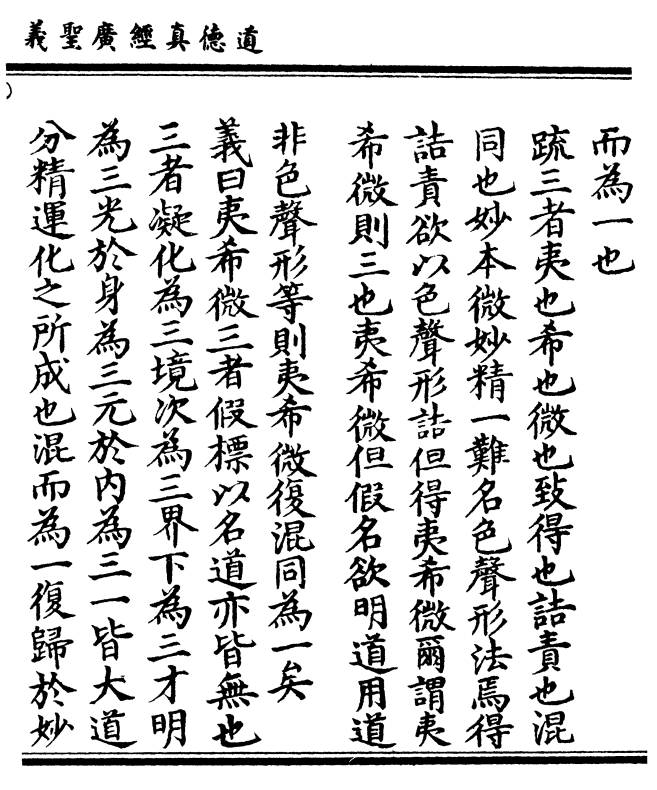 道德真經廣聖義
而為一也
疏三者夷也希也微也致得也詰責也混
同也妙本微妙精一難名色聲形法焉得
詰責欲以色聲形詰但得夷希微爾謂夷
希微則三也夷希微但假名欲明道用道
非色聲形等則夷希微復混同為一矣
義曰夷希微三者假標以名道亦皆無也
三者凝化為三境次為三界下為三才明
為三光於身為三元於內為三一皆大道
分精運化之所成也混而為一復歸於妙